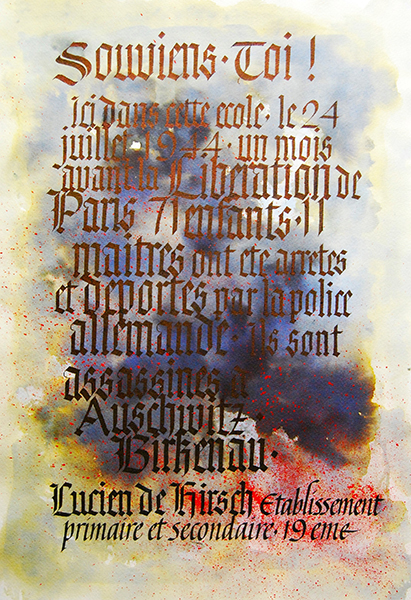 Souviens·Toi !
Ici dans cette ecole· le 24
juillet·1944·un mois
avant la Libération de
Paris 71 enfants·11
maitres ont ete arretes
et deportes par la police
allemande· ils sont
assassines a
Auschwitz·
Birkenau·
Lucien de Hirsch Etablissement
primaire et secondaire·19 eme